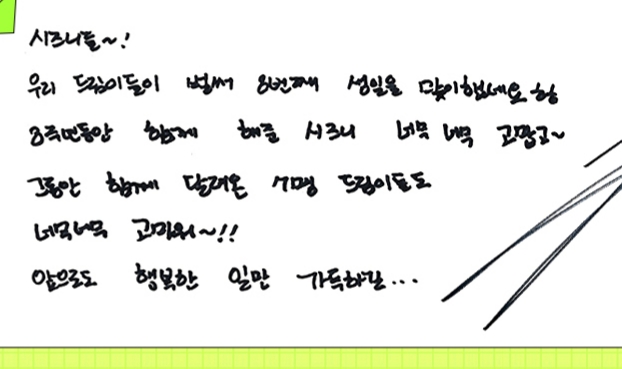 시즈니들~!
우리 드림이들이 벌써 8번째 생일을 맞이했네요 항
8주년동안 함께 해준 시즈니 너무 너무 고맙고~
그동안 함께 달려온 7명 드림이들도
너무너무 고마워~!!
앞으로도 행복한 일만 가득하길...